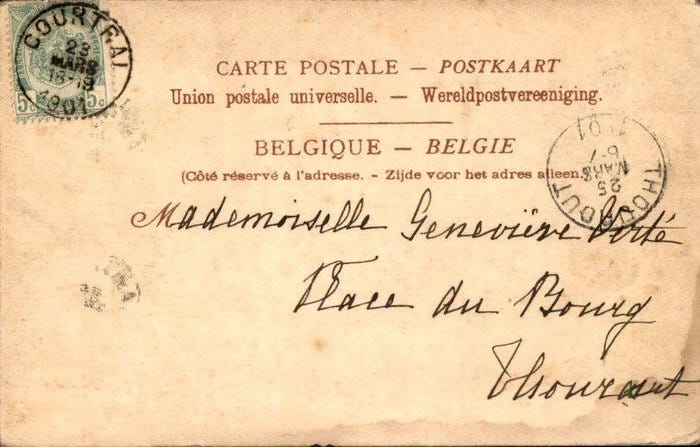 COURTRAI
23
MARS
1901
5c 5c
CARTE POSTALE — POSTKAART
Union postale universelle. — Wereldpostvereeniging.
BELGIQUE — BELGIE
(Côté réservé à l'adresse. - Zijde voor het adres alleen.)
THOUROUT
25
MARS
6-7
1901
Mademoiselle Geneviève Verté
Place du Bourg
Thourout